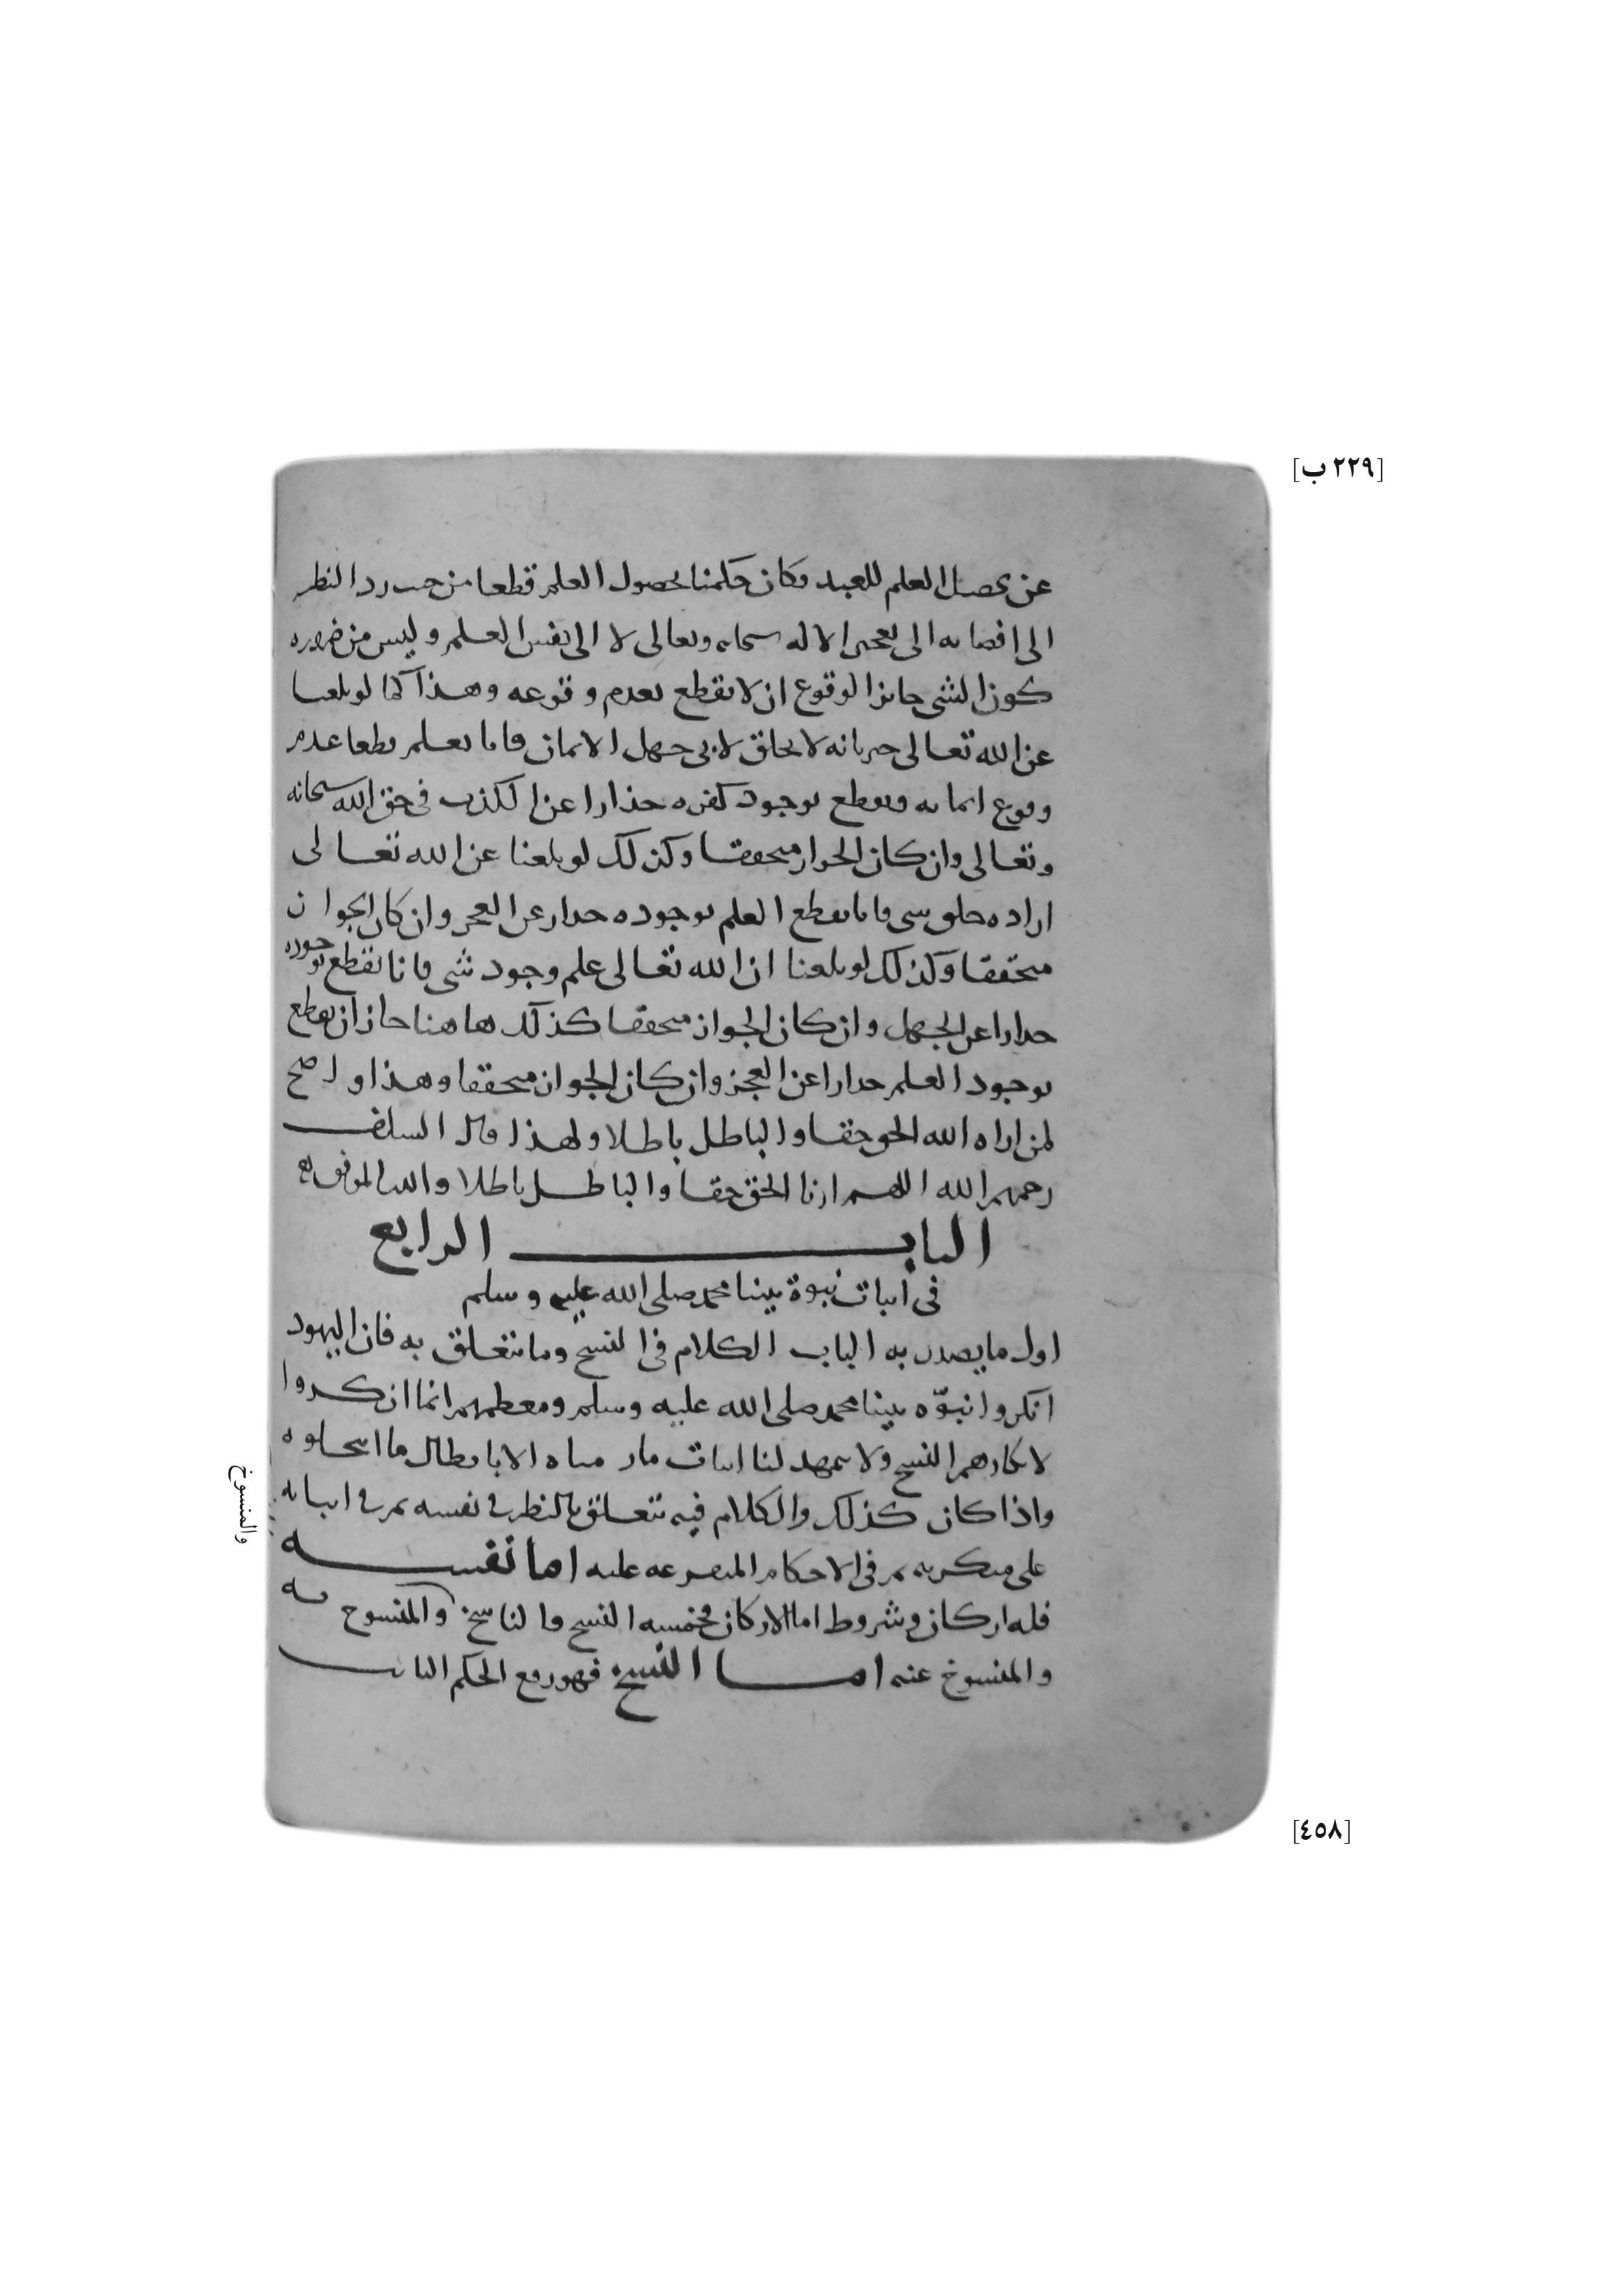 [٢٢٩ ب]
عن تحصيل العلم للعبد فكان حكمنا بحصول العلم قطعا من حيث رد النظر
الى افضائه الى تعجيز الاله سبحانه وتعالى لا الى نفس العلم وليس من ضرورة
كون الشي جائز الوقوع ان لا نقطع بعدم وقوعه وهذا كما لو بلغنا
عن الله تعالى خبر بانه لا يخلق لابي جهل الايمان فانا نعلم قطعا عدم
وقوع ايمانه ونقطع بوجود كفره حذارا عن الكذب في حق الله سبحانه
وتعالى وان كان الجواز متحققا وكذلك لو بلغنا عن الله تعالى
ارادة خلق شي فانا نقطع العلم بوجوده حذار عن العجز وان كان الجواز
متحققا وكذلك لو بلغنا ان الله تعالى علم وجود شي فانا نقطع بوجوده
حذارا عن الجهل وان كان الجواز متحققا كذلك هاهنا جاز ان نقطع
بوجود العلم حذارا عن العجز وان كان الجواز متحققا وهذا واضح
لمن اراه الله الحق حقا والباطل باطلا ولهذا قال السلف
رحمهم الله اللهم ارنا الحق حقا والباطل باطلا والله الموفق
البـــاب الرابع
في اثبات نبوة نبينا محمد صلى الله عليه وسلم
اول ما يصدر به الباب الكلام في النسخ وما يتعلق به فان اليهود
انكروا نبوّة نبينا محمد صلى الله عليه وسلم ومعظمهم انما انكروا
لانكارهم النسخ ولا يتمهد لنا اثبات ما رمناه الا بابطال ما انتحلوه
واذا كان كذلك والكلام فيه يتعلق بالنظر في نفسه ثم في اثباته
على منكريه ثم في الاحكام المتفرعة عليه اما نفسه
فله اركان وشروط اما الاركان فخمسة النسخ والناسخ والمنسوخ به
والمنسوخ
والمنسوخ عنه امـــا النسخ فهو رفع الحكم الثابت
[٤٥٨]